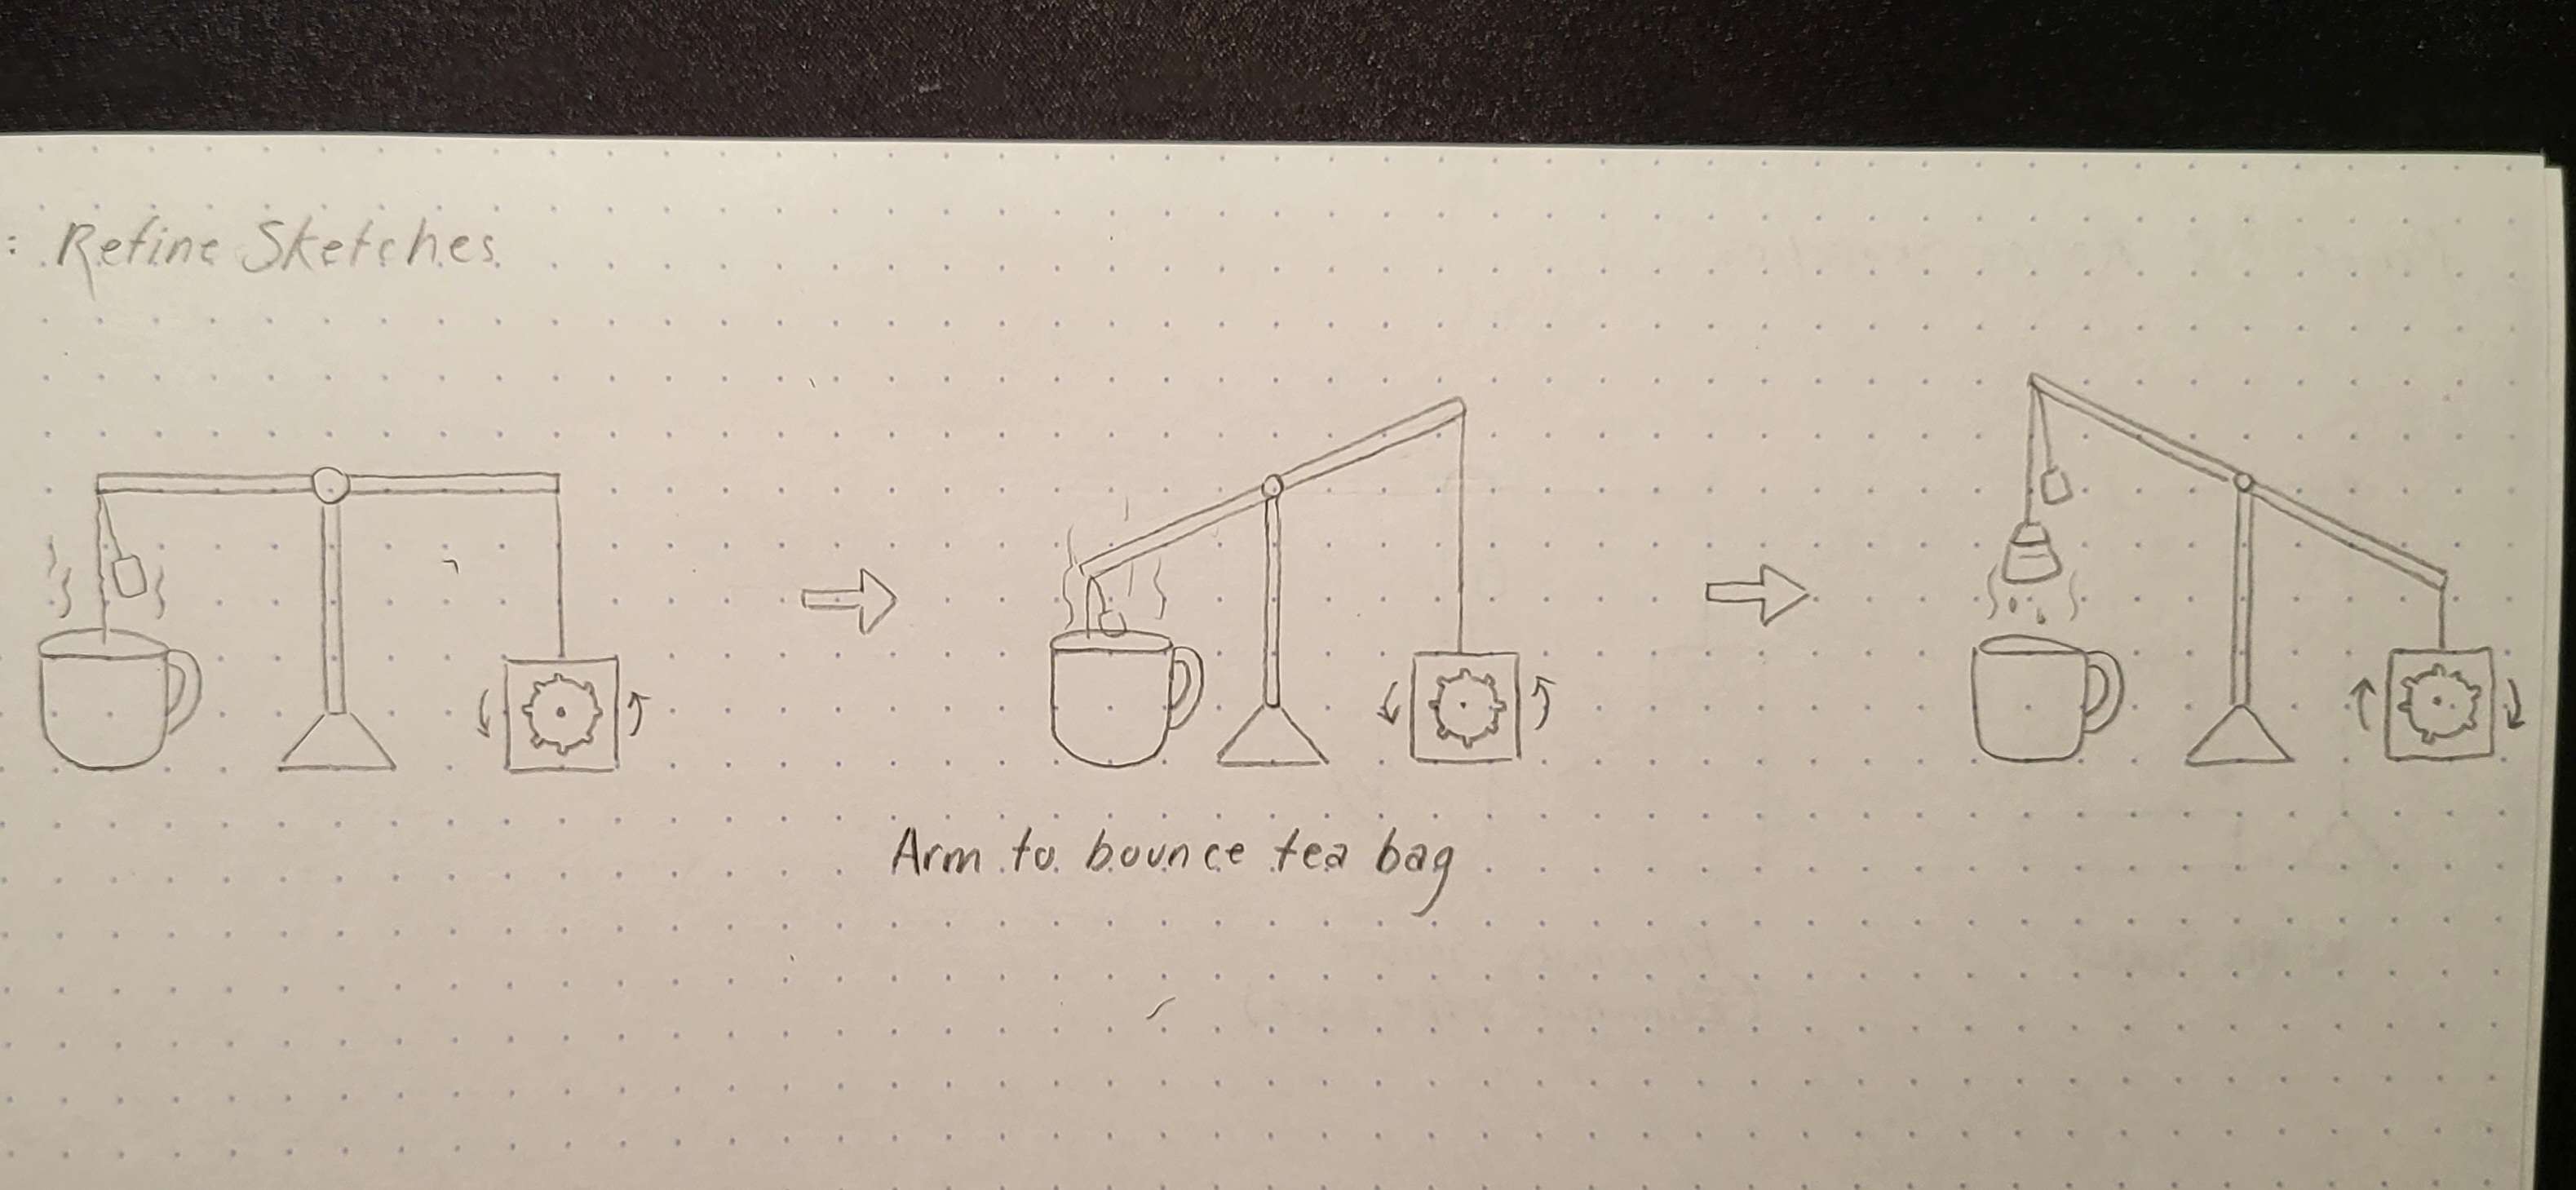 : Refine Sketches
Arm to bounce tea bag